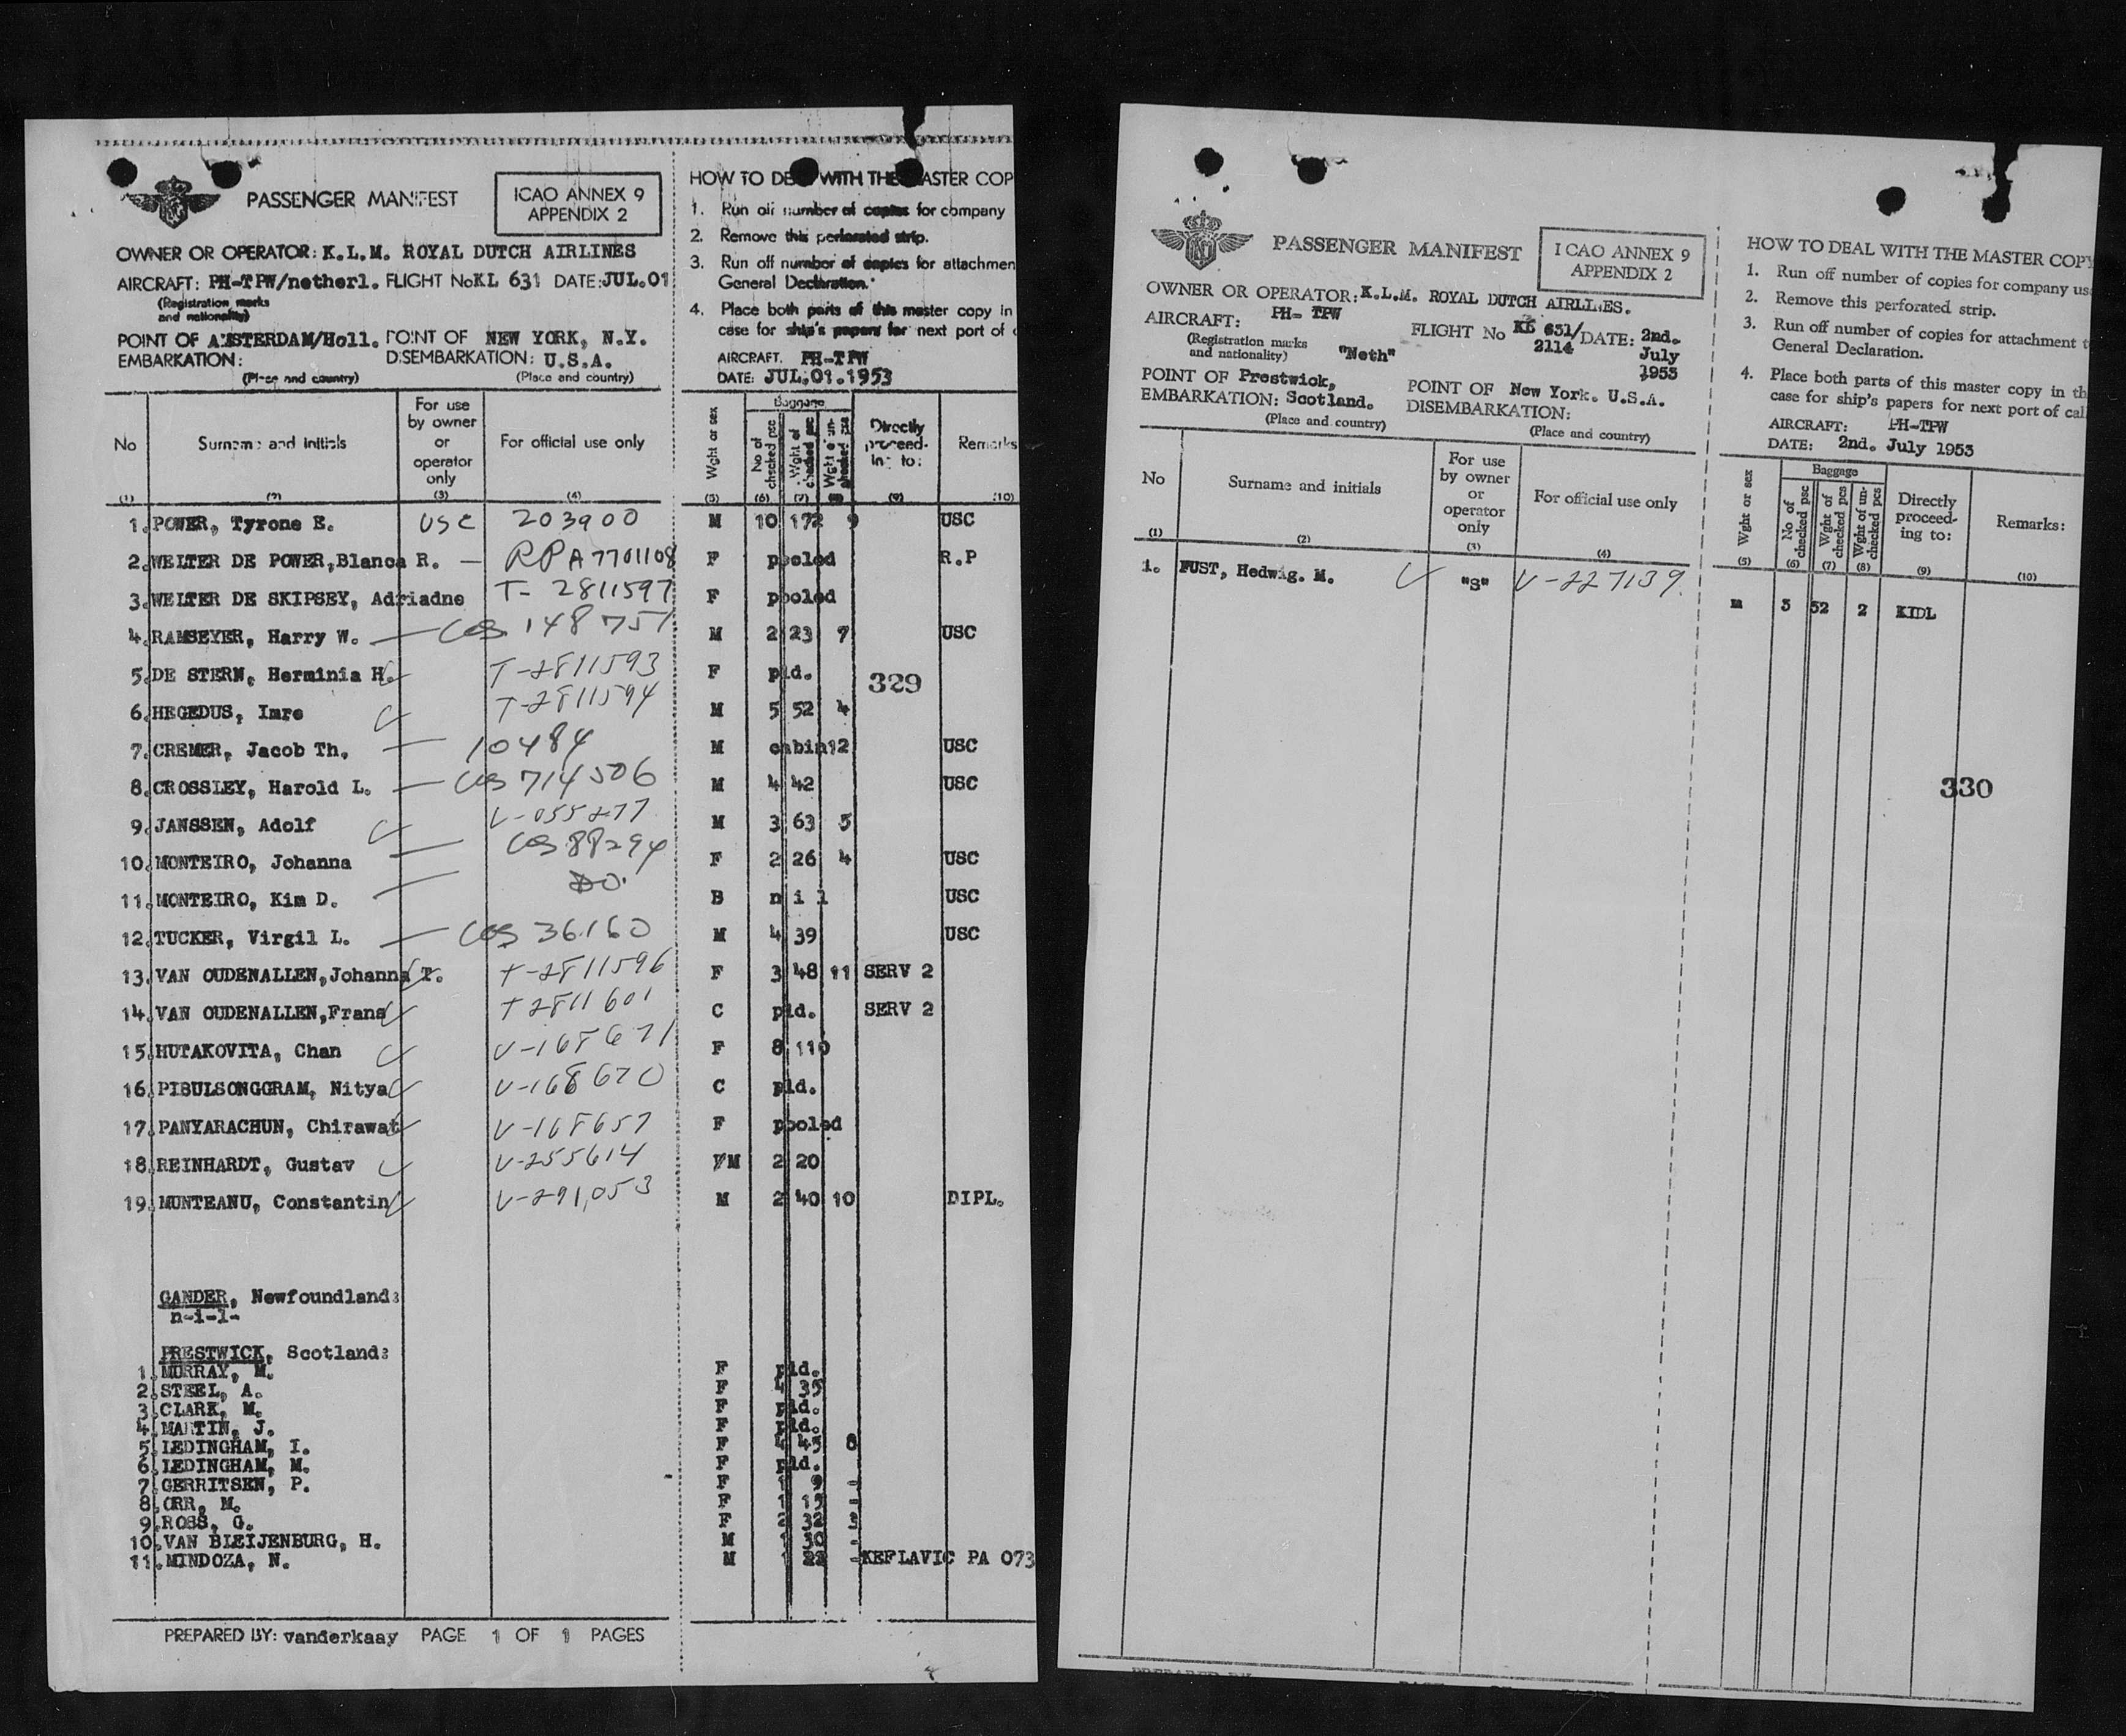 PASSENGER MANIFEST
ICAO ANNEX 9
APPENDIX 2
OWNER OR OPERATOR: K.L.M. ROYAL DUTCH AIRLINES
AIRCRAFT: PH-TPW/netherl. FLIGHT No KL 631 DATE: JUL.01
(Registration marks
and nationality)
POINT OF AMSTERDAM/Holl. POINT OF NEW YORK, N.Y.
EMBARKATION: DISEMBARKATION: U.S.A.
(Place and country) (Place and country)
HOW TO DEAL WITH THE MASTER COP
1. Run off number of copies for company
2. Remove this perforated strip.
3. Run off number of copies for attachmen
General Declaration.
4. Place both parts of this master copy in
case for ship's papers for next port of
AIRCRAFT. PH-TPW
DATE: JUL.01.1953
No Surname and initials For use by owner or operator only For official use only Wght or sex Baggage No of checked pcs Wght of checked pcs Wght of un-checked pcs Directly proceed-ing to: Remarks
(1) (2) (3) (4) (5) (6) (7) (8) (9) (10)
1. POWER, Tyrone E. USC 203900 M 10 172 9 USC
2. WELTER DE POWER, Blanca R. — RP A7701108 F pooled R.P
3. WELTER DE SKIPSEY, Adriadne T- 2811597 F pooled
4. RAMSEYER, Harry W. — 148751 M 2 23 7 USC
5. DE STERN, Herminia H. T-2811593 F pld.
329
6. HEGEDUS, Imre T-2811594 M 5 52 4
7. CREMER, Jacob Th. — 10484 M cabin 12 USC
8. CROSSLEY, Harold L. — 714506 M 4 42 USC
9. JANSSEN, Adolf V-055277 M 3 63 5
10. MONTEIRO, Johanna — 88294 F 2 26 4 USC
11. MONTEIRO, Kim D. — DO. B n i l USC
12. TUCKER, Virgil L. — 36160 M 4 39 USC
13. VAN OUDENALLEN, Johanna T. T-2811596 F 3 48 11 SERV 2
14. VAN OUDENALLEN, Frans T2811601 C pld. SERV 2
15. HUTAKOVITA, Chan V-168671 F 8 110
16. PIBULSONGGRAM, Nitya V-168670 C pld.
17. PANYARACHUN, Chirawat V-168657 F pooled
18. REINHARDT, Gustav V-255614 M 2 20
19. MUNTEANU, Constantin V-291,053 M 2 40 10 DIPL.
GANDER, Newfoundland:
n-i-l-
PRESTWICK, Scotland:
1. MURRAY, M. F. pld.
2. STEEL, A. F. 35
3. CLARK, M. F. pld.
4. MARTIN, J. F. pld.
5. LEDINGHAM, I. F. 8
6. LEDINGHAM, M. F. pld.
7. GERRITSEN, P. F. 1 9
8. ORR, M. F. 1
9. ROSS, G. F. 2 32
10. VAN BLEIJENBURG, H. M 1 30
11. MINDOZA, N. M 1 22 KEFLAVIC PA 073
PREPARED BY: vanderkaay PAGE 1 OF 1 PAGES
PASSENGER MANIFEST
ICAO ANNEX 9
APPENDIX 2
OWNER OR OPERATOR: K.L.M. ROYAL DUTCH AIRLINES.
AIRCRAFT: PH- TPW FLIGHT No KL 631/2114 DATE: 2nd. July 1953
(Registration marks
and nationality) "Neth"
POINT OF Prestwick, POINT OF New York. U.S.A.
EMBARKATION: Scotland. DISEMBARKATION:
(Place and country) (Place and country)
HOW TO DEAL WITH THE MASTER COPY
1. Run off number of copies for company us
2. Remove this perforated strip.
3. Run off number of copies for attachment t
General Declaration.
4. Place both parts of this master copy in th
case for ship's papers for next port of cal
AIRCRAFT: PH-TPW
DATE: 2nd. July 1953
No Surname and initials For use by owner or operator only For official use only Wght or sex Baggage No of checked psc Wght of checked pcs Wght of un-checked pcs Directly proceed-ing to: Remarks:
(1) (2) (3) (4) (5) (6) (7) (8) (9) (10)
1. FUST, Hedwig. M. "S" V-227139. m 3 52 2 KIDL
330